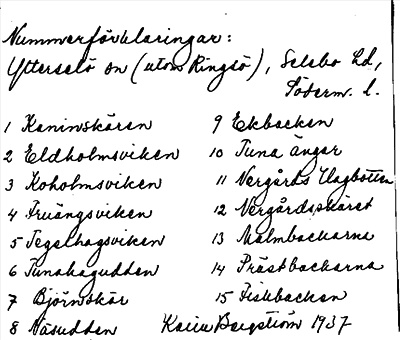 Nummerförklaringar:
Ytterselö sn (utom Ringsö), Selebo hd,
Söderm. l.
1 Kaninskären
2 Eldholmsviken
3 Koholmsviken
4 Fruängsviken
5 Tegelhagsviken
6 Tunahagudden
7 Björnskär
8 Näsudden
9 Ekbacken
10 Tuna ängar
11 Nergårds Hagbotten
12 Nergårdsskäret
13 Malmbackarna
14 Prästbackarna
15 Fiskbacken
Karin Bergström 1937